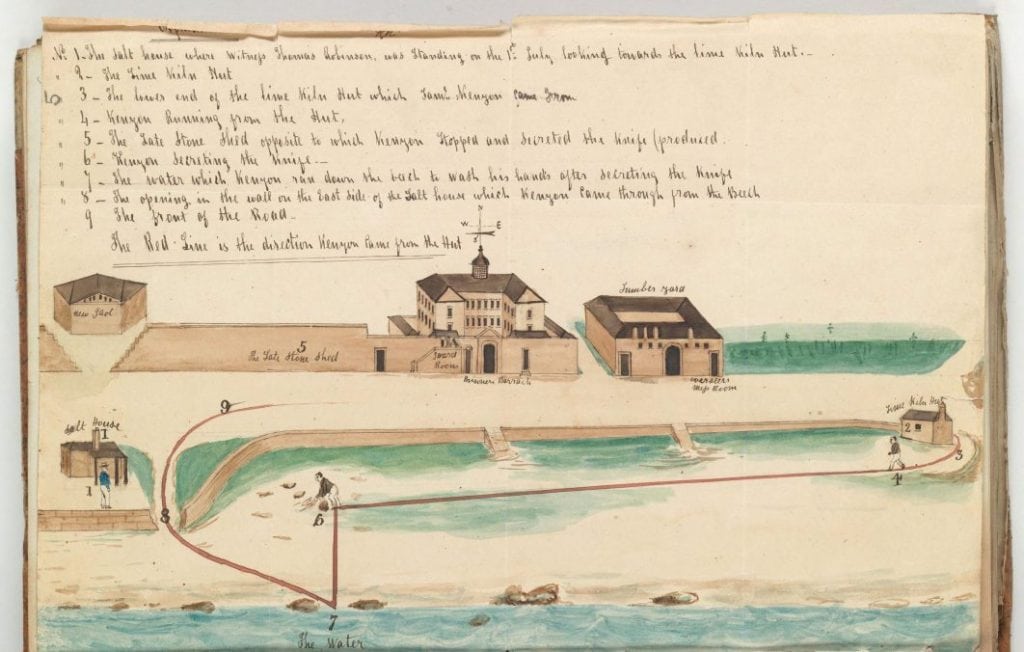 No 1 - The Salt house where Witness Thomas Robinson, was Standing on the 1st July looking towards the lime Kiln Hut. -
" 2 - The Lime Kiln Hut
" 3 - The lower end of the lime Kiln Hut which Saml Kenyon came from
" 4 - Kenyon Running from the Hut,
" 5 - The Late Stone Shed opposite to which Kenyon Stopped and Secreted the Knife (produced.
" 6 - Kenyon Secreting the Knife. -
" 7 - The water which Kenyon ran down the beech to wash his hands after secreting the Knife
" 8 - The opening in the wall on the East side of the Salt house which Kenyon Came through from the Beech
9 The front of the Road -
The Red Line is the direction Kenyon Came from the Hut
5
N
W E
New Gaol
5
The Late Stone Shed
Guard Room
Prisoners Barrack
Lumber Yard
overseers Mess Room
Salt House
1
1
9
Lime Kiln Hut
2
3
4
6
8
7
The Water